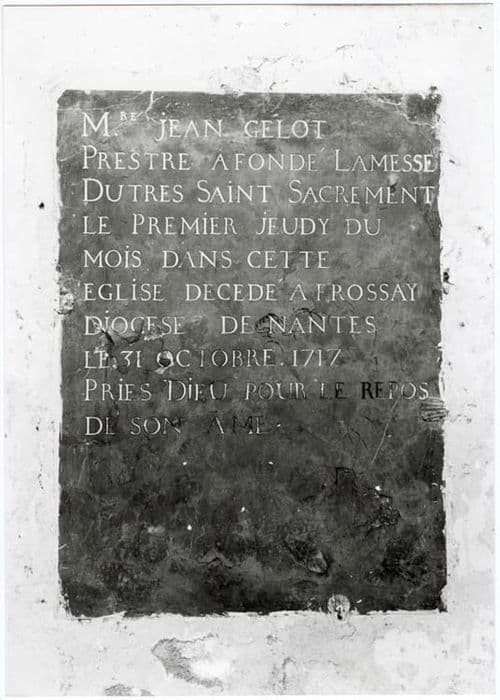 M.RE JEAN GELOT
PRESTRE AFONDÉ LAMESSE
DUTRES SAINT SACREMENT
LE PREMIER JEUDY DU
MOIS DANS CETTE
EGLISE DECEDÉ A FROSSAY
DIOCESE DE NANTES
LE 31 OCTOBRE. 1717
PRIES DIEU POUR LE REPOS
DE SON AME.